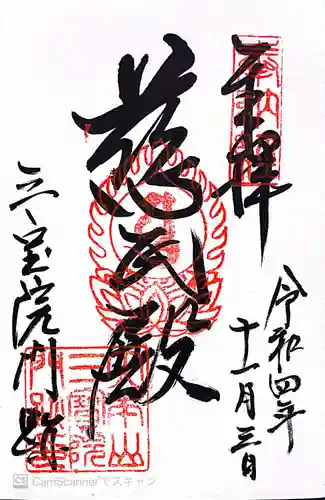 奉拝
令和四年
十一月三日
慈氏殿
三宝院門跡
CamScannerでスキャン